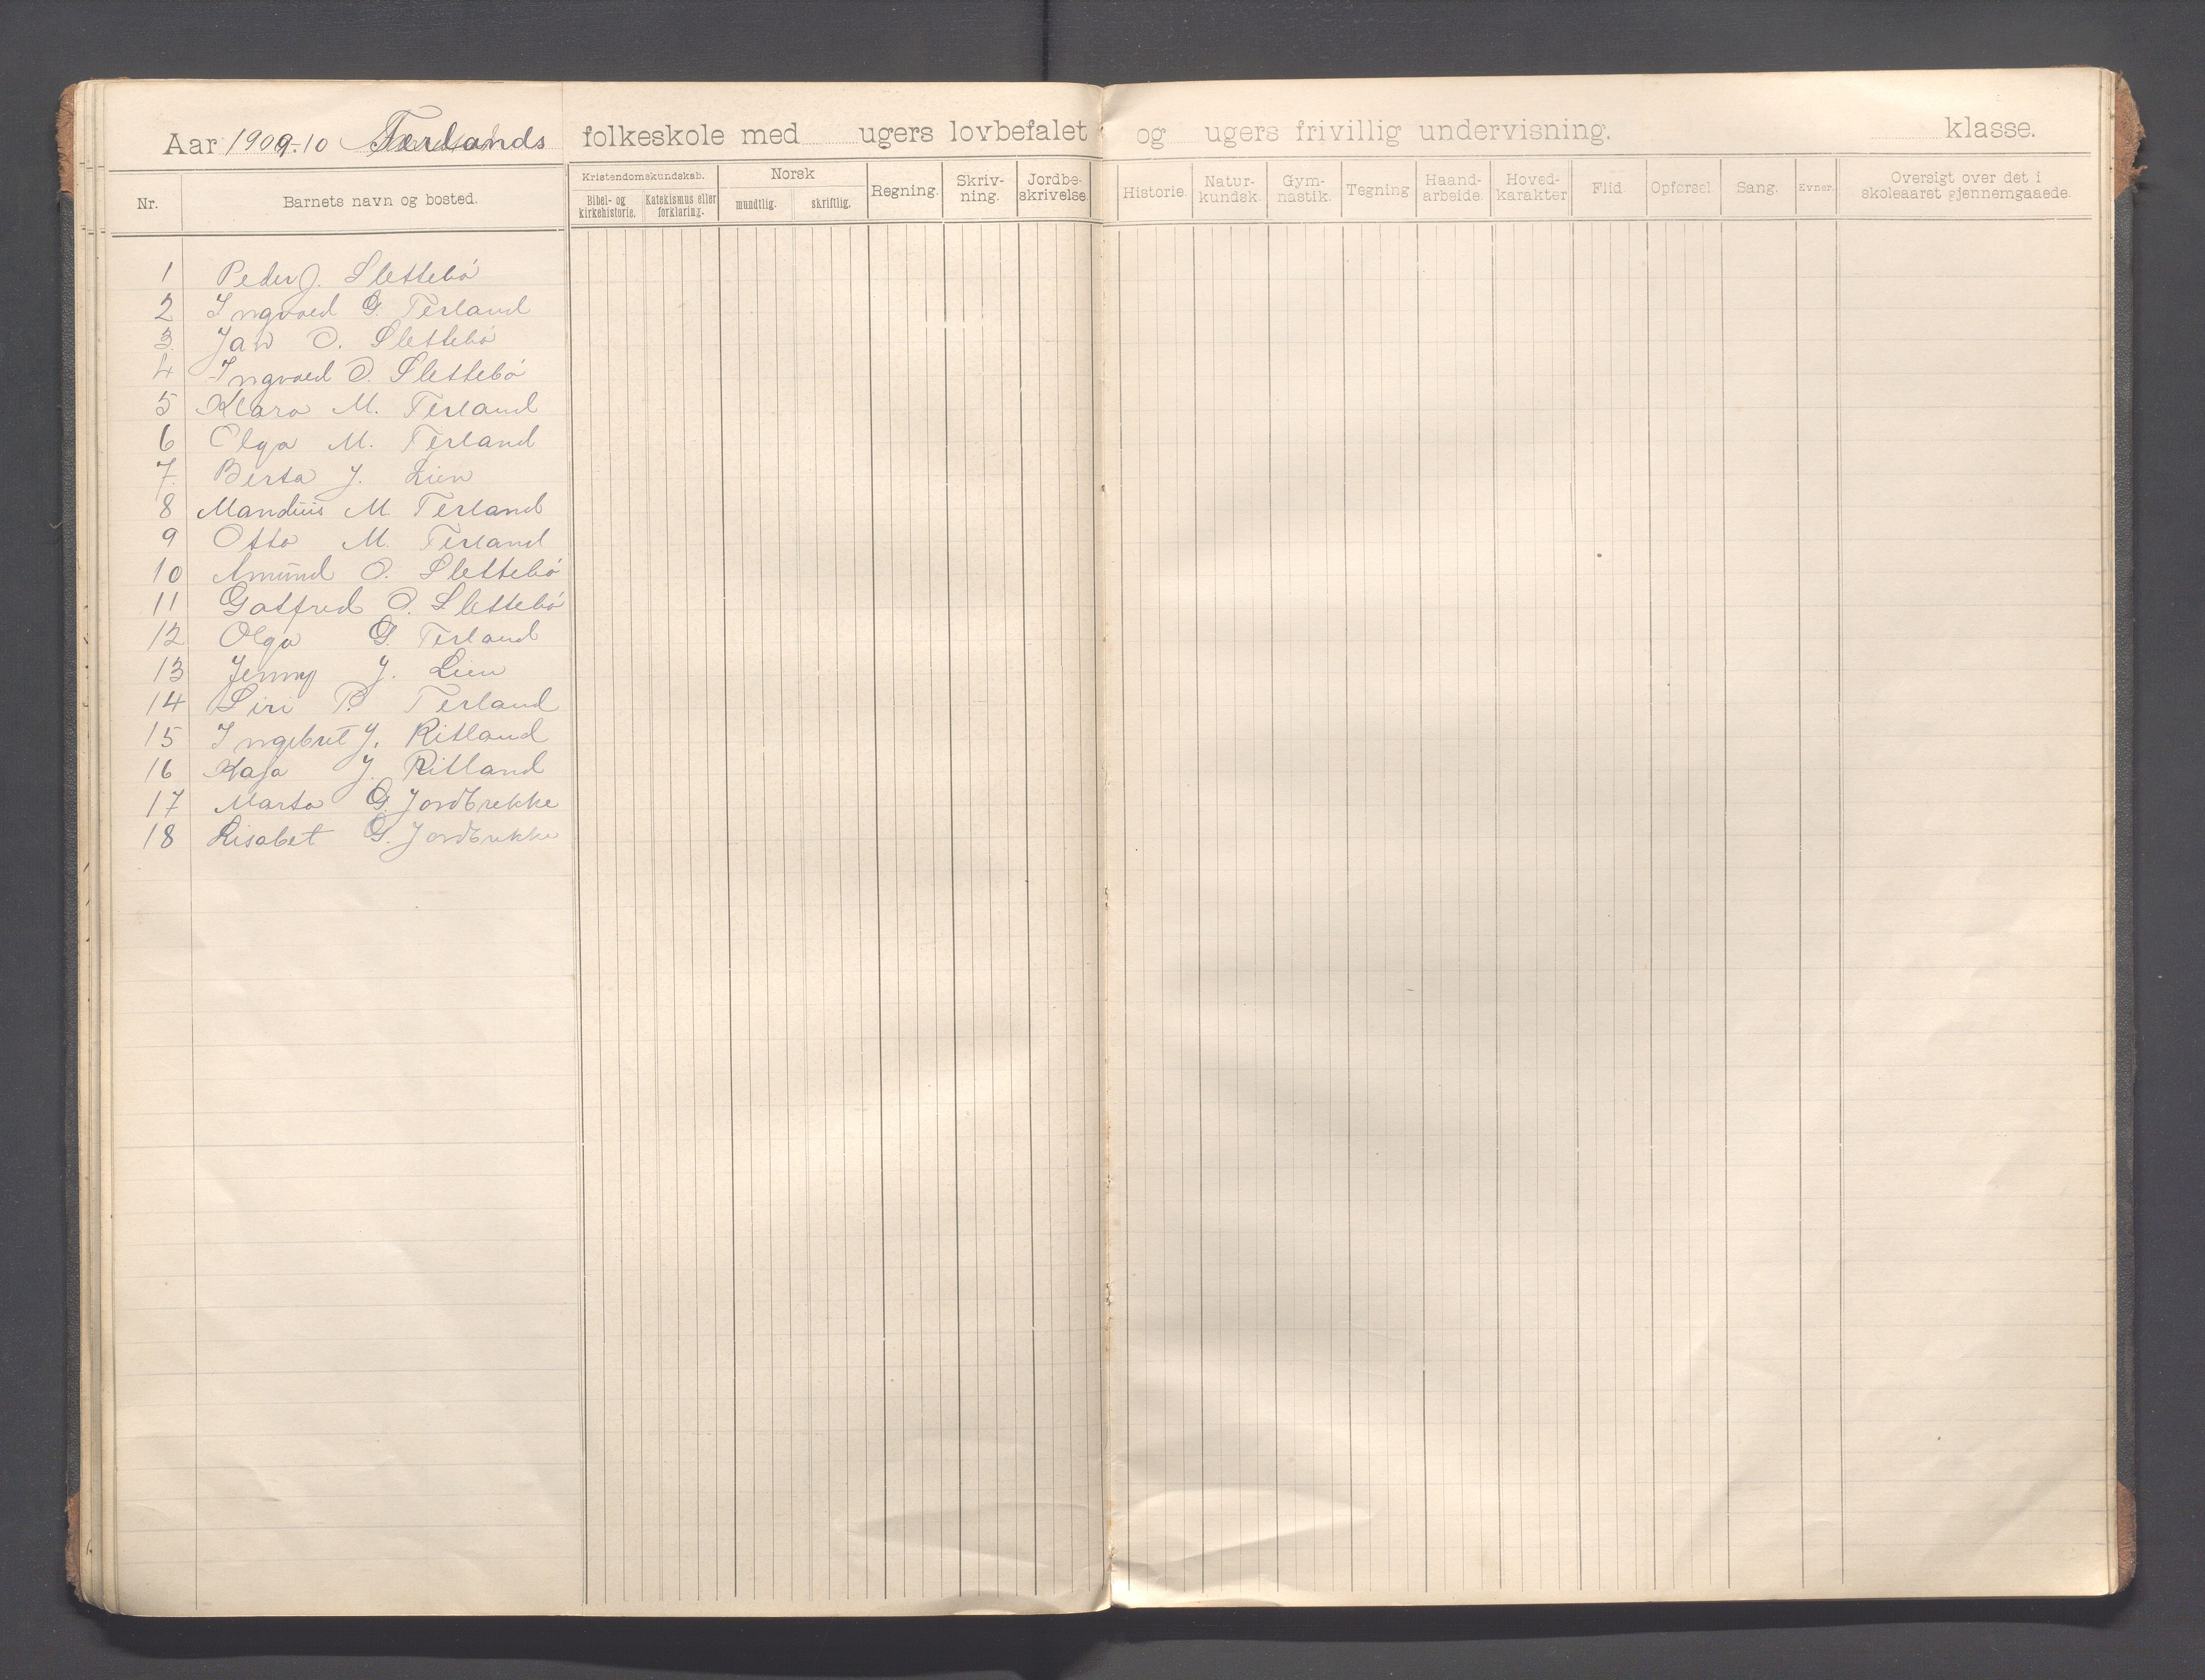 Aar 1909-10 Tærlands folkeskole med ugers lovbefalet og ugers frivillig undervisning. klasse.
Nr.
Barnets navn og bosted.
Kristendomskundskab.
Bibel- og kirkehistorie.
Katekismus eller forklaring.
Norsk
mundtlig.
skriftlig.
Regning.
Skriv-
ning.
Jordbe-
skrivelse
Historie.
Natur-
kundsk.
Gym-
nastik.
Tegning
Haand-
arbeide.
Hoved-
karakter
Flid
Opførsel
Sang.
Evner.
Oversigt over det i
skoleaaret gjennemgaaede.
1 Peder J. Slettebó
2 Ingvald G. Terland
3. Jan O. Slettebó
4 Ingvald O. Slettebó
5 Klara M. Terland
6 Olga M. Terland
7. Berta J. Lien
8 Mandius M. Terland
9 Otto M. Terland
10 Amund O. Slettebó
11 Gotfred O. Slettebó
12 Olga G. Terland
13 Jenny J. Lien
14 Siri P. Terland
15 Ingebret J. Ritland
16 Kaja J. Ritland
17 Marta G. Jordbrekke
18 Lisabet G. Jordbrekke